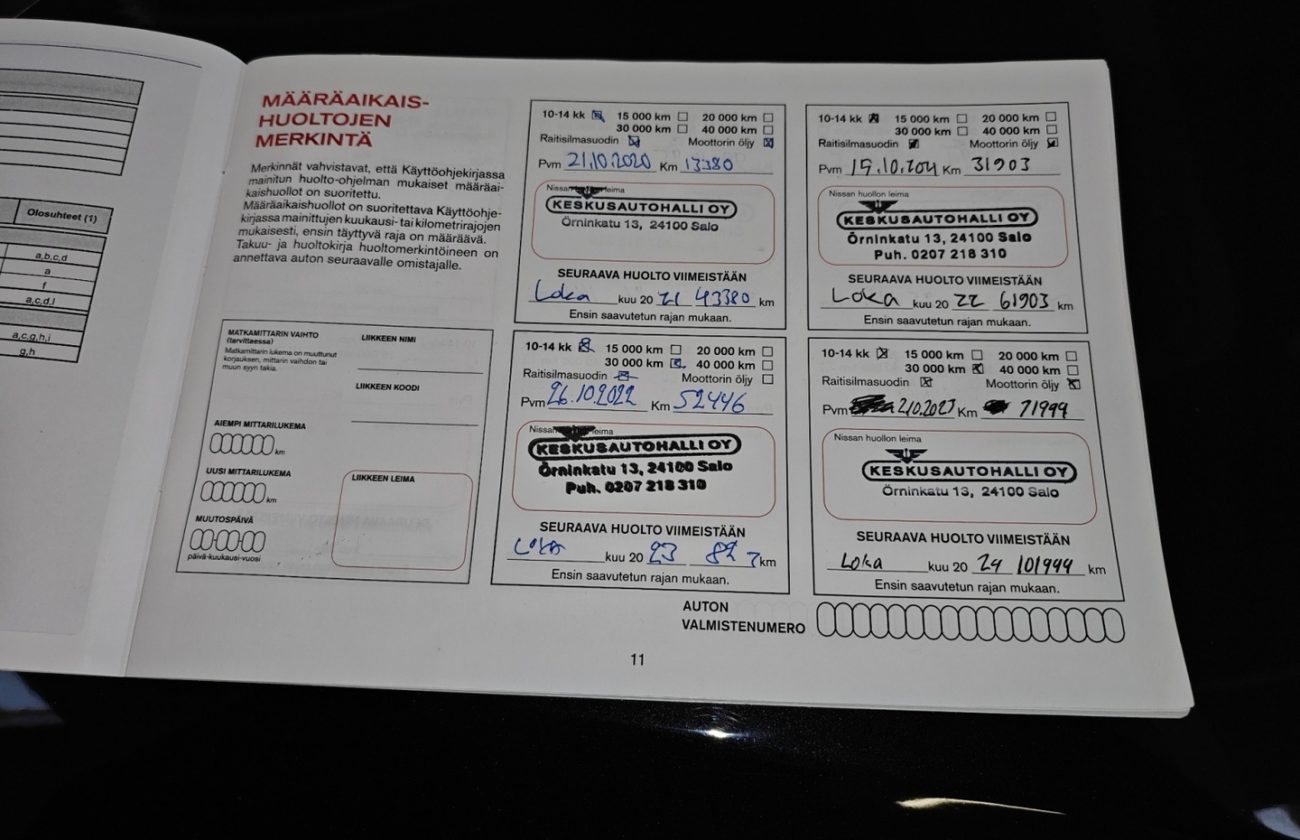 Olosuhteet (1)
a,b,c,d
a
f
a,c,d,i
a,c,g,h,i
g,h
MÄÄRÄAIKAIS-
HUOLTOJEN
MERKINTÄ
Merkinnät vahvistavat, että Käyttöohjekirjassa
mainitun huolto-ohjelman mukaiset määräai-
kaishuollot on suoritettu.
Määräaikaishuollot on suoritettava Käyttöohje-
kirjassa mainittujen kuukausi- tai kilometrirajojen
mukaisesti, ensin täyttyvä raja on määräävä.
Takuu- ja huoltokirja huoltomerkintöineen on
annettava auton seuraavalle omistajalle.
MATKAMITTARIN VAIHTO
(tarvittaessa)
Matkamittarin lukema on muuttunut
korjauksen, mittarin vaihdon tai
muun syyn takia.
LIIKKEEN NIMI
LIIKKEEN KOODI
AIEMPI MITTARILUKEMA
km
UUSI MITTARILUKEMA
km
MUUTOSPÄIVÄ
päivä-kuukausi-vuosi
LIIKKEEN LEIMA
10-14 kk 15 000 km 20 000 km
30 000 km 40 000 km
Raitisilmasuodin Moottorin öljy
Pvm 21.10.2020 Km 13380
Nissan leima
KESKUSAUTOHALLI OY
Örninkatu 13, 24100 Salo
SEURAAVA HUOLTO VIIMEISTÄÄN
Loka kuu 20 21 43380 km
Ensin saavutetun rajan mukaan.
10-14 kk 15 000 km 20 000 km
30 000 km 40 000 km
Raitisilmasuodin Moottorin öljy
Pvm 15.10.2021 Km 31903
Nissan huollon leima
KESKUSAUTOHALLI OY
Örninkatu 13, 24100 Salo
Puh. 0207 218 310
SEURAAVA HUOLTO VIIMEISTÄÄN
Loka kuu 20 22 61903 km
Ensin saavutetun rajan mukaan.
10-14 kk 15 000 km 20 000 km
30 000 km 40 000 km
Raitisilmasuodin Moottorin öljy
Pvm 26.10.2022 Km 52446
Nissan leima
KESKUSAUTOHALLI OY
Örninkatu 13, 24100 Salo
Puh. 0207 218 310
SEURAAVA HUOLTO VIIMEISTÄÄN
Loka kuu 20 23 km
Ensin saavutetun rajan mukaan.
10-14 kk 15 000 km 20 000 km
30 000 km 40 000 km
Raitisilmasuodin Moottorin öljy
Pvm 2.10.2023 Km 71999
Nissan huollon leima
KESKUSAUTOHALLI OY
Örninkatu 13, 24100 Salo
SEURAAVA HUOLTO VIIMEISTÄÄN
Loka kuu 20 24 101999 km
Ensin saavutetun rajan mukaan.
AUTON
VALMISTENUMERO
11